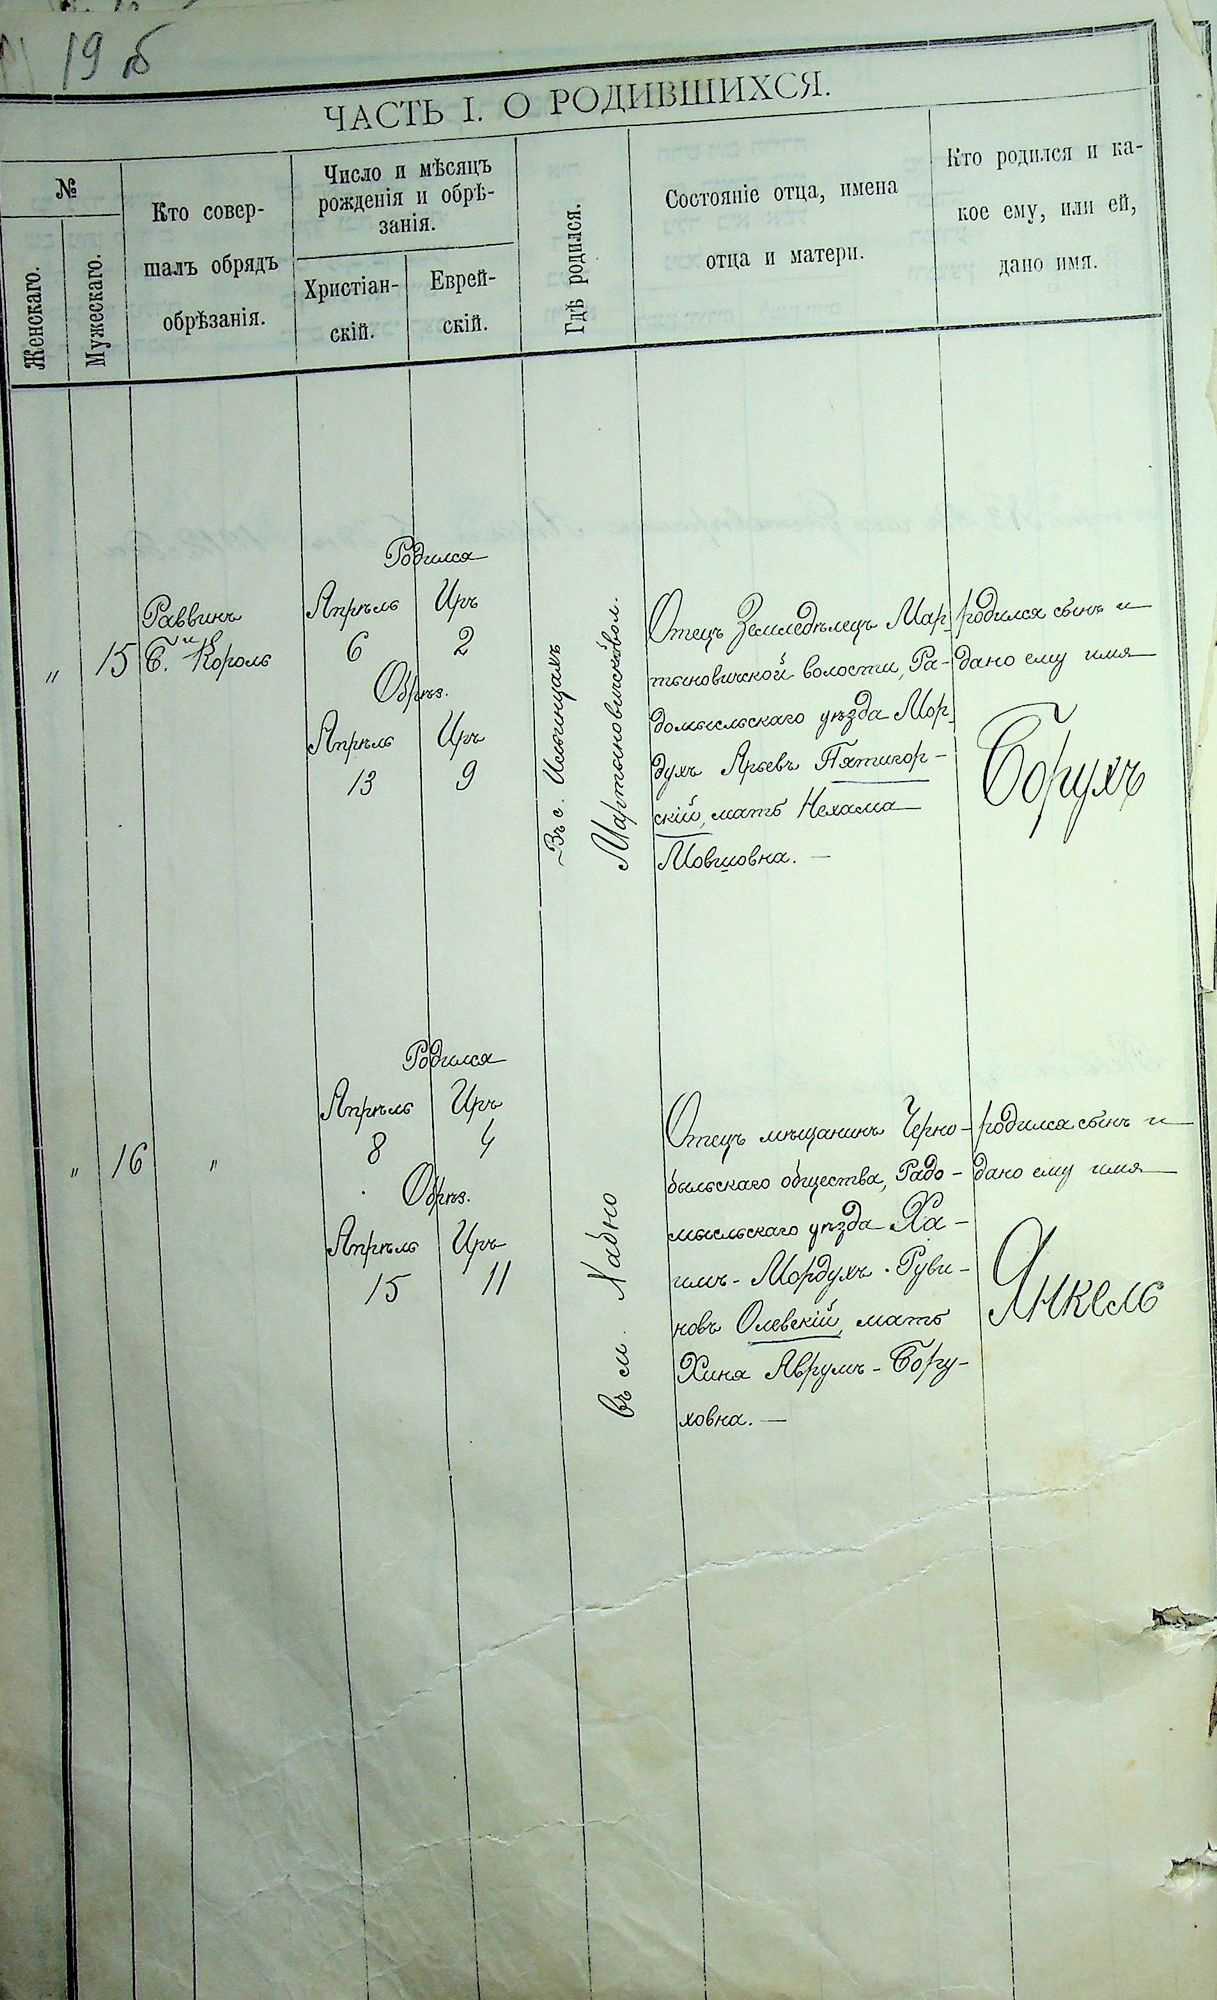 19 б
ЧАСТЬ I. О РОДИВШИХСЯ.
№
Женскаго.
Мужескаго.
Кто совер-
шалъ обрядъ
обрѣзанія.
Число и мѣсяцъ
рожденія и обрѣ-
занія.
Христіан-
скій.
Еврей-
скій.
Гдѣ родился.
Состояніе отца, имена
отца и матери.
Кто родился и ка-
кое ему, или ей,
дано имя.
"
15
Раввинъ
Б. Король
Родился
Апрѣль Иръ
6 2
Обрѣз.
Апрѣль Иръ
13 9
Въ с.
Мартыновичской вол.
Отецъ Земледѣлецъ Мар-
тыновичской волости, Ра-
домысльскаго уѣзда Мор-
духъ Арьевъ Пятигор-
скій, мать Нехама
Мовшовна. —
родился сынъ и
дано ему имя
Борухъ
"
16
"
Родился
Апрѣль Иръ
8 4
Обрѣз.
Апрѣль Иръ
15 11
Въ м. Хабно
Отецъ мѣщанинъ Черно-
быльскаго общества, Радо-
мысльскаго уѣзда Ха-
имъ-Мордухъ Руви-
новъ Олевскій, мать
Хиня Аврумъ-Бору-
ховна. —
родился сынъ и
дано ему имя
Янкель